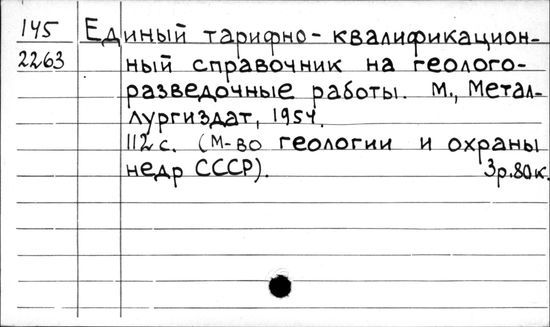 145
2263
Единый тарифно-квалификацион-
ный справочник на геолого-
разведочные работы. М., Метал-
лургиздат, 1954.
112 с. (М-во геологии и охраны
недр СССР).
3р.80к.